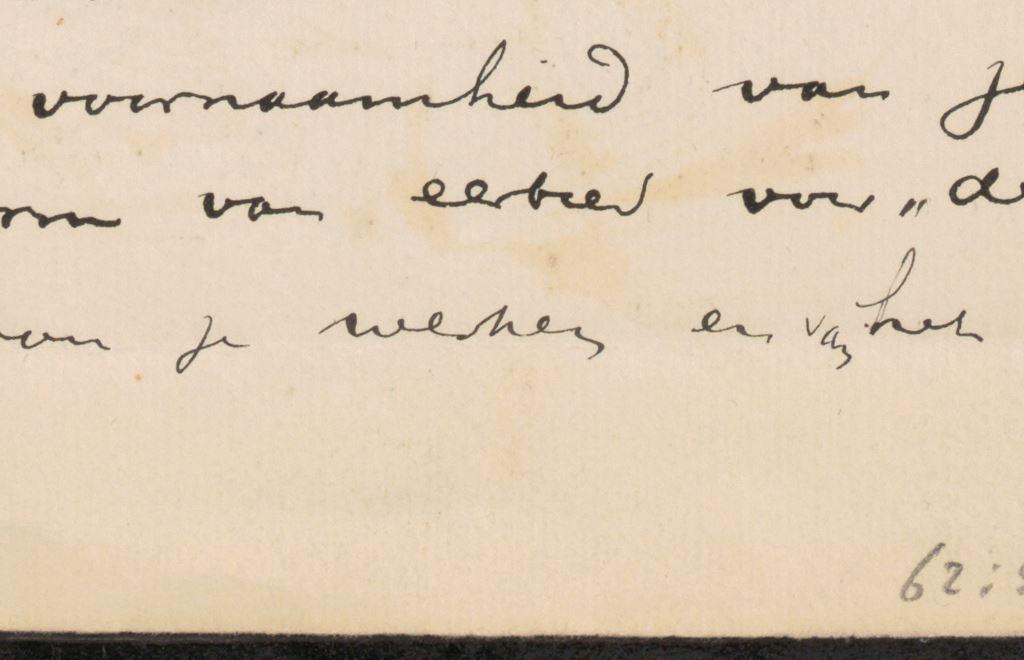 voornaamheid van je
rm van eerbied voor „de
van je werken en van het
62: